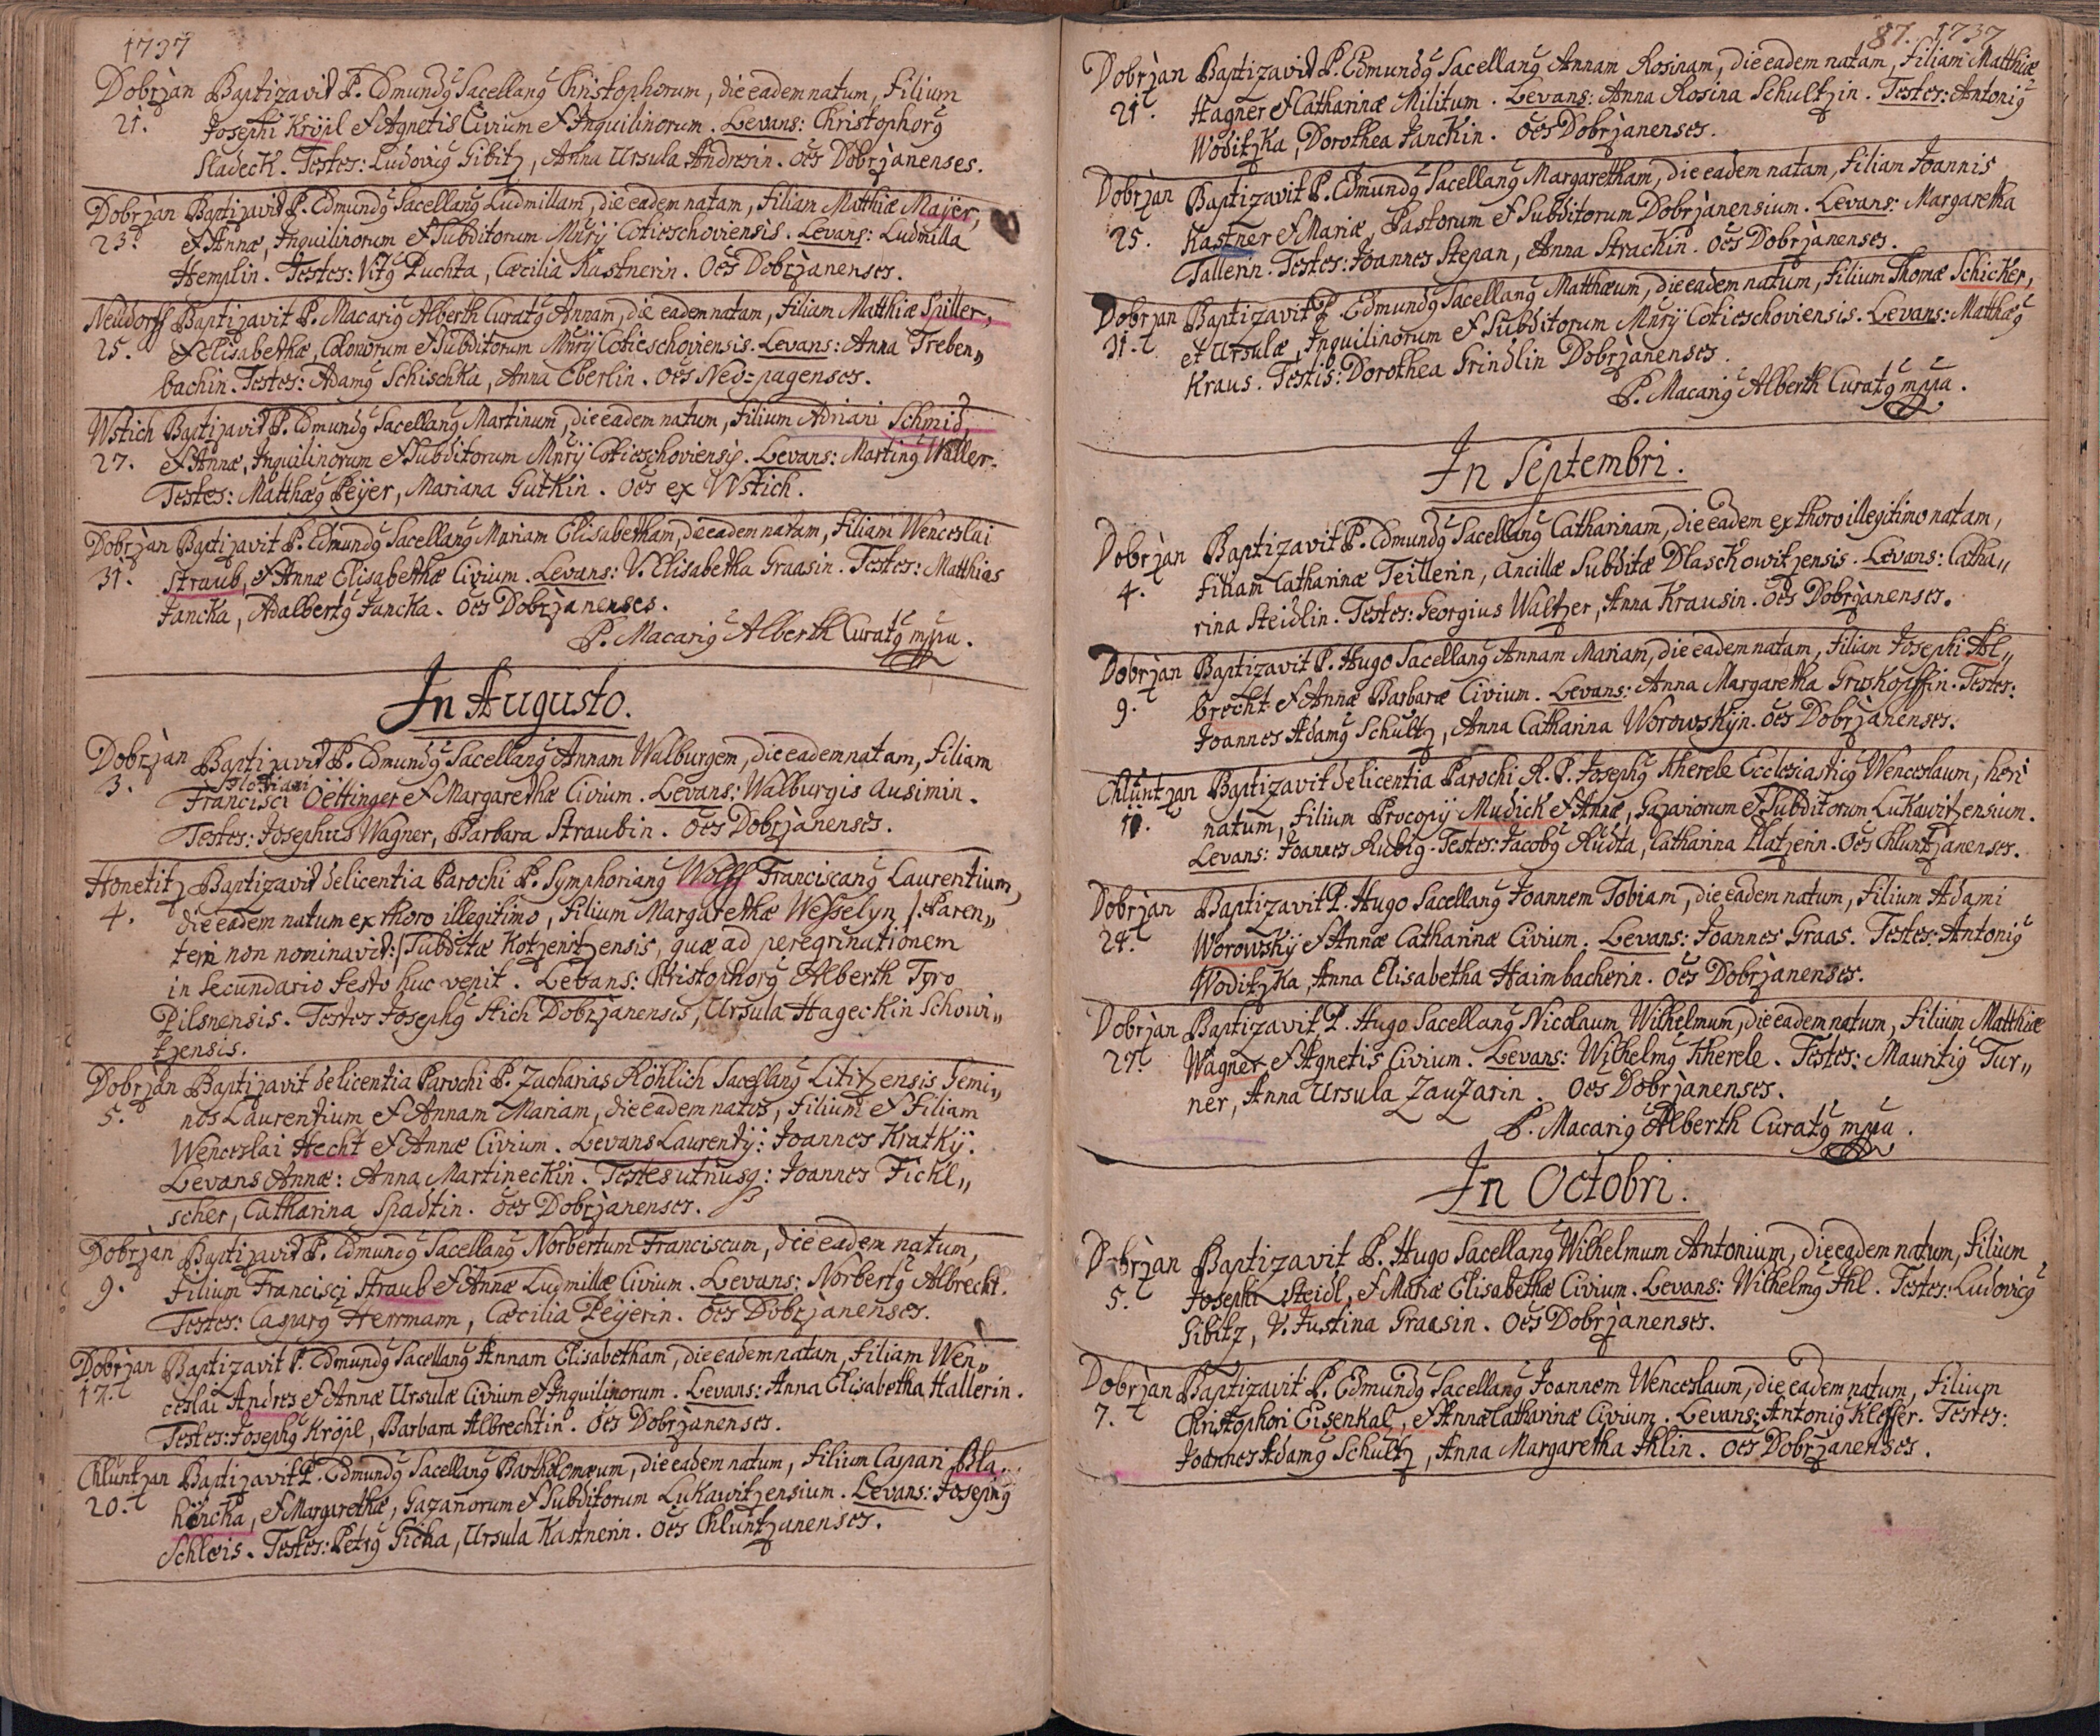 1737
Dobrjan Baptizavit P. Edmundꝰ Sacellanꝰ Christophorum, die eadem natum, Filium
21. Josephi Kröpl et Agnetis Civium et Inquilinorum. Levans: Christophorꝰ
Sladeck. Testes: Ludovicꝰ Gibitz, Anna Ursula Andresin. Oẽs Dobrjanenses.
Dobrjan Baptizavit P. Edmundꝰ Sacellanꝰ Ludmillam, die eadem natam, Filiam Matthiæ Majer,
23. et Annæ, Inquilinorum et Subditorum Mnrij Cotieschoviensis. Levans: Ludmilla
Hemplin. Testes: Vitꝰ Puchta, Cæcilia Kastnerin. Oẽs Dobrjanenses.
Neudorff Baptizavit P. Macariꝰ Alberth Curatꝰ Annam, die eadem natam, Filiam Matthiæ Spiller,
25. et Elisabethæ, Colonorum et Subditorum Mnrij Cotieschoviensis. Levans: Anna Treben„
bachin. Testes: Adamꝰ Schischka, Anna Eberlin. Oẽs Neo=pagenses.
Wstich Baptizavit P. Edmundꝰ Sacellanꝰ Martinum, die eadem natum, Filium Adriani Schmid,
27. et Annæ, Inquilinorum et Subditorum Mnrij Cotieschoviensis. Levans: Martinꝰ Waller.
Testes: Matthæꝰ Peÿer, Mariana Gutkin. Oẽs ex Wstich.
Dobrjan Baptizavit P. Edmundꝰ Sacellanꝰ Mariam Elisabetham, die eadem natam, Filiam Wenceslai
31. Straub, et Annæ Elisabethæ Civium. Levans: V. Elisabetha Graasin. Testes: Matthias
Jancka, Adalbertꝰ Jancka. Oẽs Dobrjanenses.
P. Macariꝰ Alberth Curatꝰ mpa.
In Augusto.
Dobrjan Baptizavit P. Edmundꝰ Sacellanꝰ Annam Walburgem, die eadem natam, Filiam
Floriani
3. Francisci Oëttinger et Margarethæ Civium. Levans: Walburgis Ausimin.
Testes: Josephus Wagner, Barbara Straubin. Oẽs Dobrjanenses.
Honetitz Baptizavit de licentia Parochi P. Symphorianꝰ Wolff Franciscanꝰ Laurentium,
4. die eadem natum ex thoro illegitimo, Filium Margarethæ Wesselyn /: Paren„
tem non nominavit :/ Subditæ Kotzenitzensis, quæ ad peregrinationem
in secundario festo huc venit. Levans: Christophorꝰ Alberth Tyro
Pilsnensis. Testes Josephꝰ Stich Dobrzanensis, Ursula Hageckin Schowi„
tzensis.
Dobrjan Baptizavit de licentia Parochi P. Zacharias Röhlich Sacellanꝰ Lititzensis Gemi„
5. nos Laurentium et Annam Mariam, die eadem natos, Filium et Filiam
Wenceslai Hecht et Annæ Civium. Levans Laurentij: Joannes Kratkÿ.
Levans Annæ: Anna Martineckin. Testes utriusq: Joannes Fickl„
scher, Catharina Spadtin. Oẽs Dobrjanenses.
Dobrjan Baptizavit P. Edmundꝰ Sacellanꝰ Norbertum Franciscum, die eadem natum,
9. Filium Francisci Straub et Annæ Ludmillæ Civium. Levans: Norbertꝰ Albrecht.
Testes: Casparꝰ Herrmann, Cæcilia Peÿerin. Oẽs Dobrjanenses.
Dobrjan Baptizavit P. Edmundꝰ Sacellanꝰ Annam Elisabetham, die eadem natam, Filiam Wen„
17. ceslai Andres et Annæ Ursulæ Civium et Inquilinorum. Levans: Anna Elisabetha Hallerin.
Testes: Josephꝰ Kröpl, Barbara Albrechtin. Oẽs Dobrjanenses.
Chluntzan Baptizavit P. Edmundꝰ Sacellanꝰ Bartholomæum, die eadem natum, Filium Caspari Bla„
20. höncka, et Margarethæ, Gazariorum et Subditorum Lukawitzensium. Levans: Josephꝰ
Schleis. Testes: Petrꝰ Gicha, Ursula Kastnerin. Oẽs Chluntzanenses.
87. 1737
Dobrjan Baptizavit P. Edmundꝰ Sacellanꝰ Annam Rosinam, die eadem natam, Filiam Matthiæ
21. Hagner et Catharinæ Militum. Levans: Anna Rosina Schultzin. Testes: Antoniꝰ
Woditzka, Dorothea Janckin. Oẽs Dobrjanenses.
Dobrjan Baptizavit P. Edmundꝰ Sacellanꝰ Margaretham, die eadem natam, Filiam Joannis
25. Kastner et Mariæ, Pastorum et Subditorum Dobrjanensium. Levans: Margaretha
Tallerin. Testes: Joannes Stepan, Anna Strackin. Oẽs Dobrjanenses.
Dobrjan Baptizavit P. Edmundꝰ Sacellanꝰ Matthæum, die eadem natum, Filium Thomæ Schicker,
31. et Ursulæ, Inquilinorum et Subditorum Mnrij Cotieschoviensis. Levans: Matthæꝰ
Kraus. Testis: Dorothea Grindlin Dobrjanenses.
P. Macariꝰ Alberth Curatꝰ mpa.
In Septembri.
Dobrjan Baptizavit P. Edmundꝰ Sacellanꝰ Catharinam, die eadem ex thoro illegitimo natam,
4. Filiam Catharinæ Teillerin, ancillæ Subditæ Dlaschowitzensis. Levans: Catha„
rina Steidlin. Testes: Georgius Waltzer, Anna Krausin. Oẽs Dobrjanenses.
Dobrjan Baptizavit P. Hugo Sacellanꝰ Annam Mariam, die eadem natam, Filiam Josephi Al„
9. brecht et Annæ Barbaræ Civium. Levans: Anna Margaretha Grioskopffin. Testes:
Joannes Adamꝰ Schultz, Anna Catharina Worowskÿn. Oẽs Dobrjanenses.
Chluntzan Baptizavit de licentia Parochi R. P. Josephꝰ Kherele Ecclesiasticꝰ Wenceslaum, heri
11. natum, Filium Procopij Mudick et Annæ, Gazariorum et Subditorum Lukawitzensium.
Levans: Joannes Rubig. Testes: Jacobꝰ Rudta, Catharina Platzerin. Oẽs Chluntzanenses.
Dobrjan Baptizavit P. Hugo Sacellanꝰ Joannem Tobiam, die eadem natum, Filium Adami
24. Worowskÿ et Annæ Catharinæ Civium. Levans: Joannes Graas. Testes: Antoniꝰ
Woditzka, Anna Elisabetha Haimbacherin. Oẽs Dobrjanenses.
Dobrjan Baptizavit P. Hugo Sacellanꝰ Nicolaum Wilhelmum, die eadem natum, Filium Matthiæ
27. Wagner et Agnetis Civium. Levans: Wilhelmꝰ Kherele. Testes: Mauritiꝰ Tur„
ner, Anna Ursula Zauzarin. Oẽs Dobrjanenses.
P. Macariꝰ Alberth Curatꝰ mpa.
In Octobri.
Dobrjan Baptizavit P. Hugo Sacellanꝰ Wilhelmum Antonium, die eadem natum, Filium
5. Josephi Steidl, et Mariæ Elisabethæ Civium. Levans: Wilhelmꝰ Ihl. Testes: Ludovicꝰ
Gibitz, V. Justina Graasin. Oẽs Dobrjanenses.
Dobrjan Baptizavit P. Edmundꝰ Sacellanꝰ Joannem Wenceslaum, die eadem natum, Filium
7. Christophori Eisenkal, et Annæ Catharinæ Civium. Levans: Antoniꝰ Klesser. Testes:
Joannes Adamꝰ Schultz, Anna Margaretha Ihlin. Oẽs Dobrjanenses.